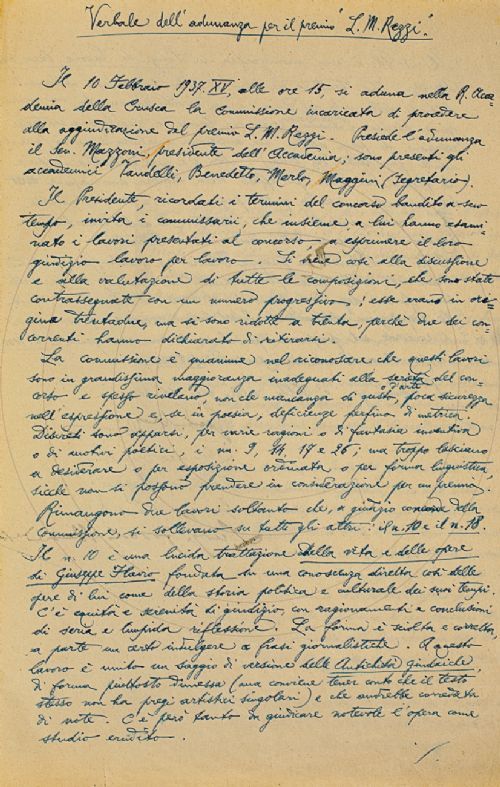 Verbale dell'adunanza per il premio "L. M. Rezzi".
Il 10 Febbraio 1937. XV, alle ore 15, si aduna nella R. Acca-
demia della Crusca la Commissione incaricata di procedere
alla aggiudicazione del premio L. M. Rezzi. Presiede l'adunanza
il Sen. Mazzoni, presidente dell'Accademia; sono presenti gli
accademici Vandelli, Benedetto, Merlo, Maggini (segretario).
Il Presidente, ricordati i termini del concorso bandito a suo
tempo, invita i commissarii, che insieme a lui hanno esami-
nato i lavori presentati al concorso, a esprimere il loro
giudizio lavoro per lavoro. Si viene così alla discussione
e alla valutazione di tutte le composizioni, che sono state
contrassegnate con un numero progressivo; esse erano in ori-
gine trentadue, ma si sono ridotte a trenta, perchè due dei con-
correnti hanno dichiarato di ritirarsi.
La commissione è unanime nel riconoscere che questi lavori
sono in grandissima maggioranza inadeguati alla serietà del con-
corso e spesso rivelano, nonchè mancanza di gusto o d'arte, poca sicurezza
nell'espressione e, se in poesia, deficienze perfino di metrica.
Discreti sono apparsi, per varie ragioni o di fantasia inventiva
o di motivi poetici, i nn. 9, 14, 19 e 26; ma troppo lasciano
a desiderare o per esposizione ordinata o per forma linguistica,
sicchè non si possono prendere in considerazione per un premio.
Rimangono due lavori soltanto che, a giudizio concorde della
Commissione, si sollevano su tutti gli altri: il n. 10 e il n. 18.
Il n. 10 è una lucida trattazione della vita e delle opere
di Giuseppe Flavio fondata su una conoscenza diretta così delle
opere di lui come della storia politica e culturale dei suoi tempi.
C'è equità e serenità di giudizio, con ragionamenti e conclusioni
di seria e limpida riflessione. La forma è sciolta e corretta,
a parte un certo indulgere a frasi giornalistiche. A questo
lavoro è unito un saggio di versione delle Antichità Giudaiche,
di forma piuttosto dimessa (ma conviene tener conto che il testo
stesso non ha pregi artistici singolari) e che andrebbe corredata
di note. C'è però tanto da giudicare notevole l'opera come
studio erudito.